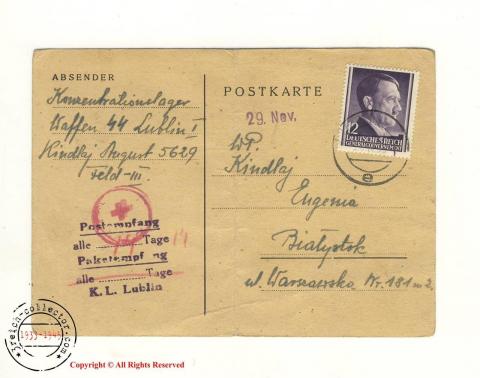 ABSENDER
Konzentrationslager
Waffen SS Lublin I
Kindlaj August 5629
Feld-III
Postempfang
alle ............ Tage 14
Paketempf ng
alle ............ Tage
K.L. Lublin
POSTKARTE
29. Nov.
WP.
Kindlaj
Eugenia
Białystok
ul. Warszawska Nr. 181 m 2.
12
DEUTSCHES REICH
GENERALGOUVERNEMENT
e
3reich-collector.com
1933-1945
Copyright © All Rights Reserved